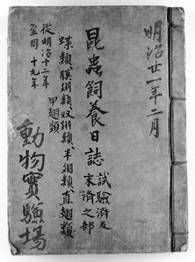 明治廿一年二月
昆蟲飼養日誌
試驗濟及
末濟之部
蝶類、膜翅類、双翅類、半翅類、直翅類、
甲翅類
從明治十二年
至同 十九年
動物實驗場